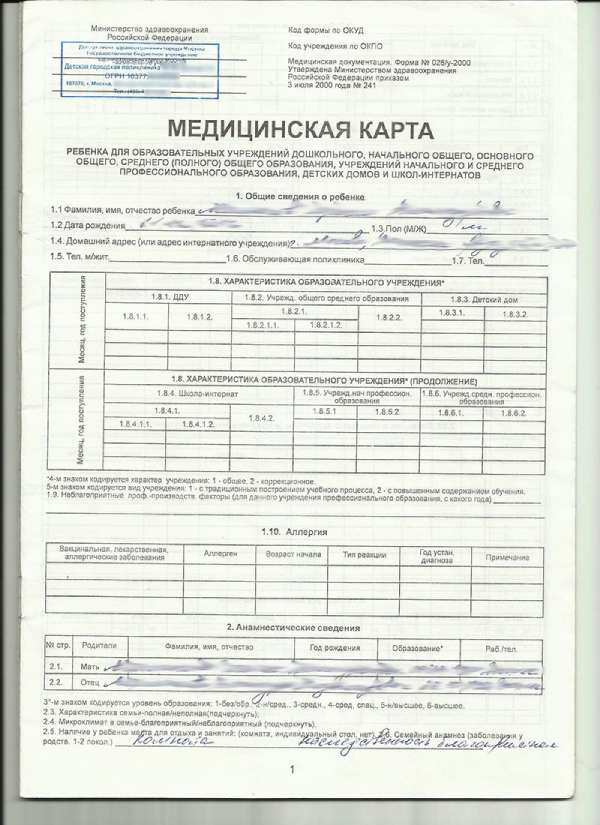 Министерство здравоохранения
Российской Федерации
Код формы по ОКУД
Код учреждения по ОКПО
Медицинская документация. Форма № 026/у-2000
Утверждена Министерством здравоохранения
Российской Федерации приказом
3 июля 2000 года № 241
Департамент здравоохранения города Москвы
Государственное бюджетное учреждение
Детская городская поликлиника
ОГРН 10377
г. Москва,
МЕДИЦИНСКАЯ КАРТА
РЕБЕНКА ДЛЯ ОБРАЗОВАТЕЛЬНЫХ УЧРЕЖДЕНИЙ ДОШКОЛЬНОГО, НАЧАЛЬНОГО ОБЩЕГО, ОСНОВНОГО
ОБЩЕГО, СРЕДНЕГО (ПОЛНОГО) ОБЩЕГО ОБРАЗОВАНИЯ, УЧРЕЖДЕНИЙ НАЧАЛЬНОГО И СРЕДНЕГО
ПРОФЕССИОНАЛЬНОГО ОБРАЗОВАНИЯ, ДЕТСКИХ ДОМОВ И ШКОЛ-ИНТЕРНАТОВ
1. Общие сведения о ребенке
1.1 Фамилия, имя, отчество ребенка
1.2 Дата рождения 1.3.Пол (М/Ж)
1.4. Домашний адрес (или адрес интернатного учреждения)
1.5. Тел. м/жит. 1.6. Обслуживающая поликлиника 1.7. Тел.
Месяц, год поступления
1.8. ХАРАКТЕРИСТИКА ОБРАЗОВАТЕЛЬНОГО УЧРЕЖДЕНИЯ*
1.8.1. ДДУ 1.8.2. Учрежд. общего среднего образования 1.8.3. Детский дом
1.8.1.1. 1.8.1.2. 1.8.2.1. 1.8.2.2. 1.8.3.1. 1.8.3.2.
1.8.2.1.1. 1.8.2.1.2.
Месяц, год поступления
1.8. ХАРАКТЕРИСТИКА ОБРАЗОВАТЕЛЬНОГО УЧРЕЖДЕНИЯ* (ПРОДОЛЖЕНИЕ)
1.8.4. Школа-интернат 1.8.5. Учрежд.нач профессион. образования 1.8.6. Учрежд.средн. профессион. образования
1.8.4.1. 1.8.4.2. 1.8.5.1 1.8.5.2 1.8.6.1. 1.8.6.2.
1.8.4.1.1. 1.8.4.1.2.
*4-м знаком кодируется характер учреждения: 1 - общее, 2 - коррекционное.
5-м знаком кодируется вид учреждения: 1 - с традиционным построением учебного процесса, 2 - с повышенным содержанием обучения.
1.9. Неблагоприятные проф.-производств. факторы (для данного учреждения профессионального образования, с какого года)
1.10. Аллергия
Вакцинальная, лекарственная, аллергические заболевания Аллерген Возраст начала Тип реакции Год устан. диагноза Примечание
2. Анамнестические сведения
№ стр. Родители Фамилия, имя, отчество Год рождения Образование* Раб./тел.
2.1. Мать
2.2. Отец
3*-м знаком кодируется уровень образования: 1-без/обр., 2-н/сред., 3-средн., 4-сред. спец., 5-н/высшее, 6-высшее.
2.3. Характеристика семьи-полная/неполная(подчеркнуть);
2.4. Микроклимат в семье-благоприятный/неблагоприятный (подчеркнуть).
2.5. Наличие у ребенка места для отдыха и занятий: (комната, индивидуальный стол, нет) 2.6. Семейный анамнез (заболевания у
родств. 1-2 покол.) комната наследственность
1